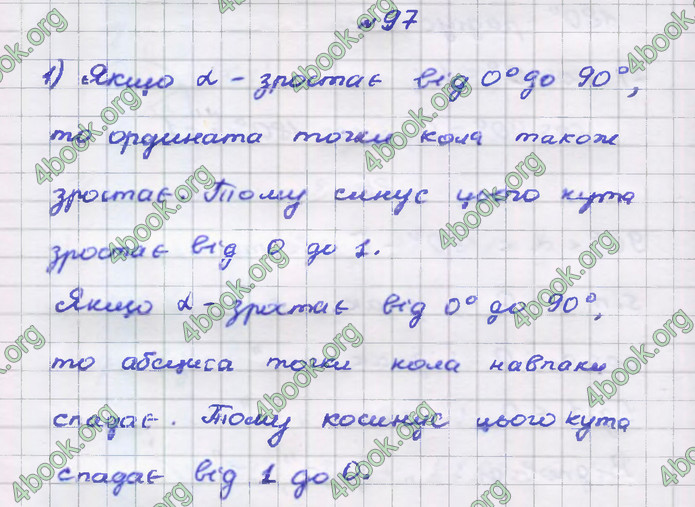 № 97
1) Якщо α - зростає від 0° до 90°,
то ордината точки кола також
зростає. Тому синус цього кута
зростає від 0 до 1.
Якщо α - зростає від 0° до 90°,
то абсциса точки кола навпаки
спадає. Тому косинус цього кута
спадає від 1 до 0.
4book.org